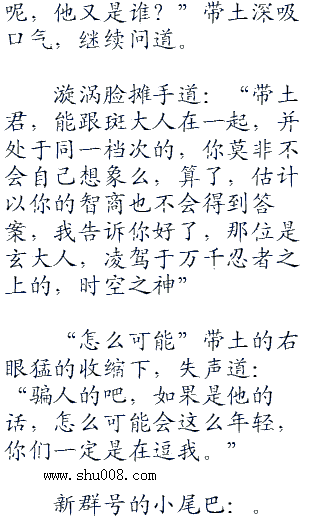 呢，他又是谁？”带土深吸
口气，继续问道。
漩涡脸摊手道：“带土
君，能跟斑大人在一起，并
处于同一档次的，你莫非不
会自己想象么，算了，估计
以你的智商也不会得到答
案，我告诉你好了，那位是
玄大人，凌驾于万千忍者之
上的，时空之神”
“怎么可能”带土的右
眼猛的收缩下，失声道：
“骗人的吧，如果是他的
话，怎么可能会这么年轻，
你们一定是在逗我。”
www.shu008.com
新群号的小尾巴：。